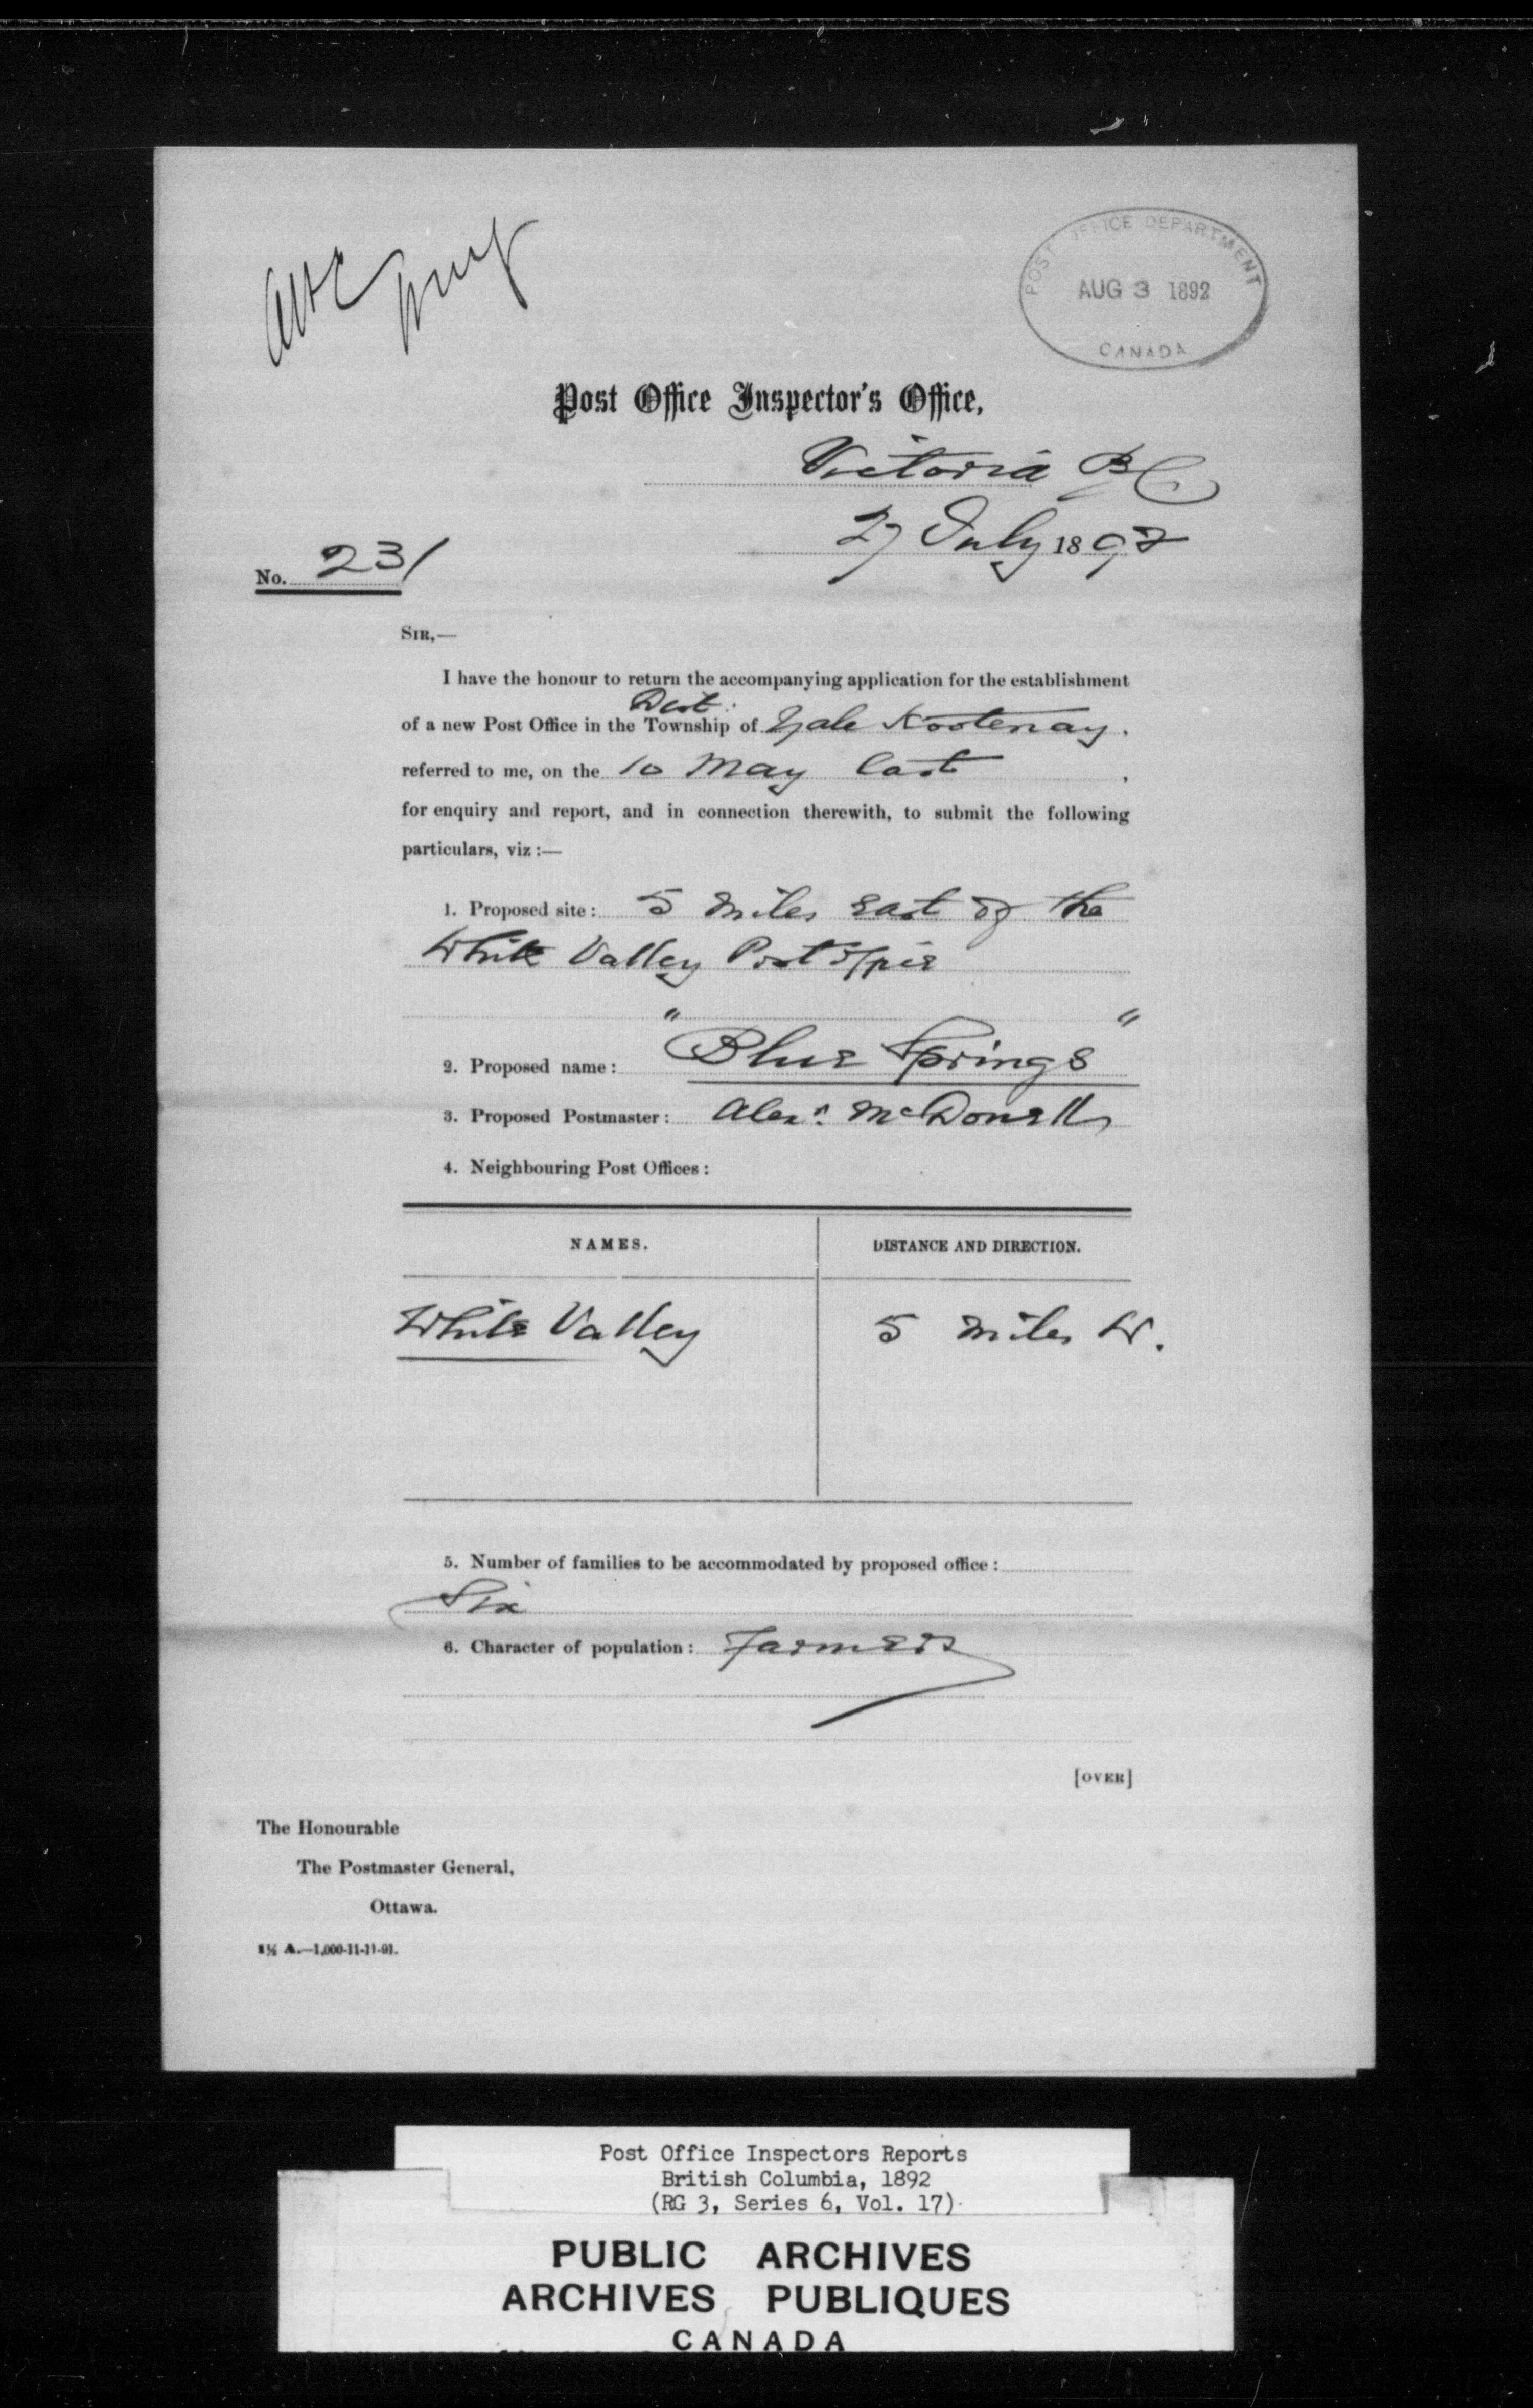 POST OFFICE DEPARTMENT
AUG 3 1892
CANADA
Post Office Inspector's Office,
Victoria BC
27 July 1892
No. 231
SIR,—
I have the honour to return the accompanying application for the establishment
Dist.
of a new Post Office in the Township of Yale Kootenay.
referred to me, on the 10 May last ,
for enquiry and report, and in connection therewith, to submit the following
particulars, viz :—
1. Proposed site: 5 miles east of the
White Valley Post Office
2. Proposed name: "Blue Springs"
3. Proposed Postmaster: Alexr. McDonell
4. Neighbouring Post Offices:
NAMES. DISTANCE AND DIRECTION.
White Valley 5 miles W.
5. Number of families to be accommodated by proposed office:
Six
6. Character of population: Farmers
[OVER]
The Honourable
The Postmaster General,
Ottawa.
1½ A.—1,000-11-11-91.
Post Office Inspectors Reports
British Columbia, 1892
(RG 3, Series 6, Vol. 17)
PUBLIC ARCHIVES
ARCHIVES PUBLIQUES
CANADA